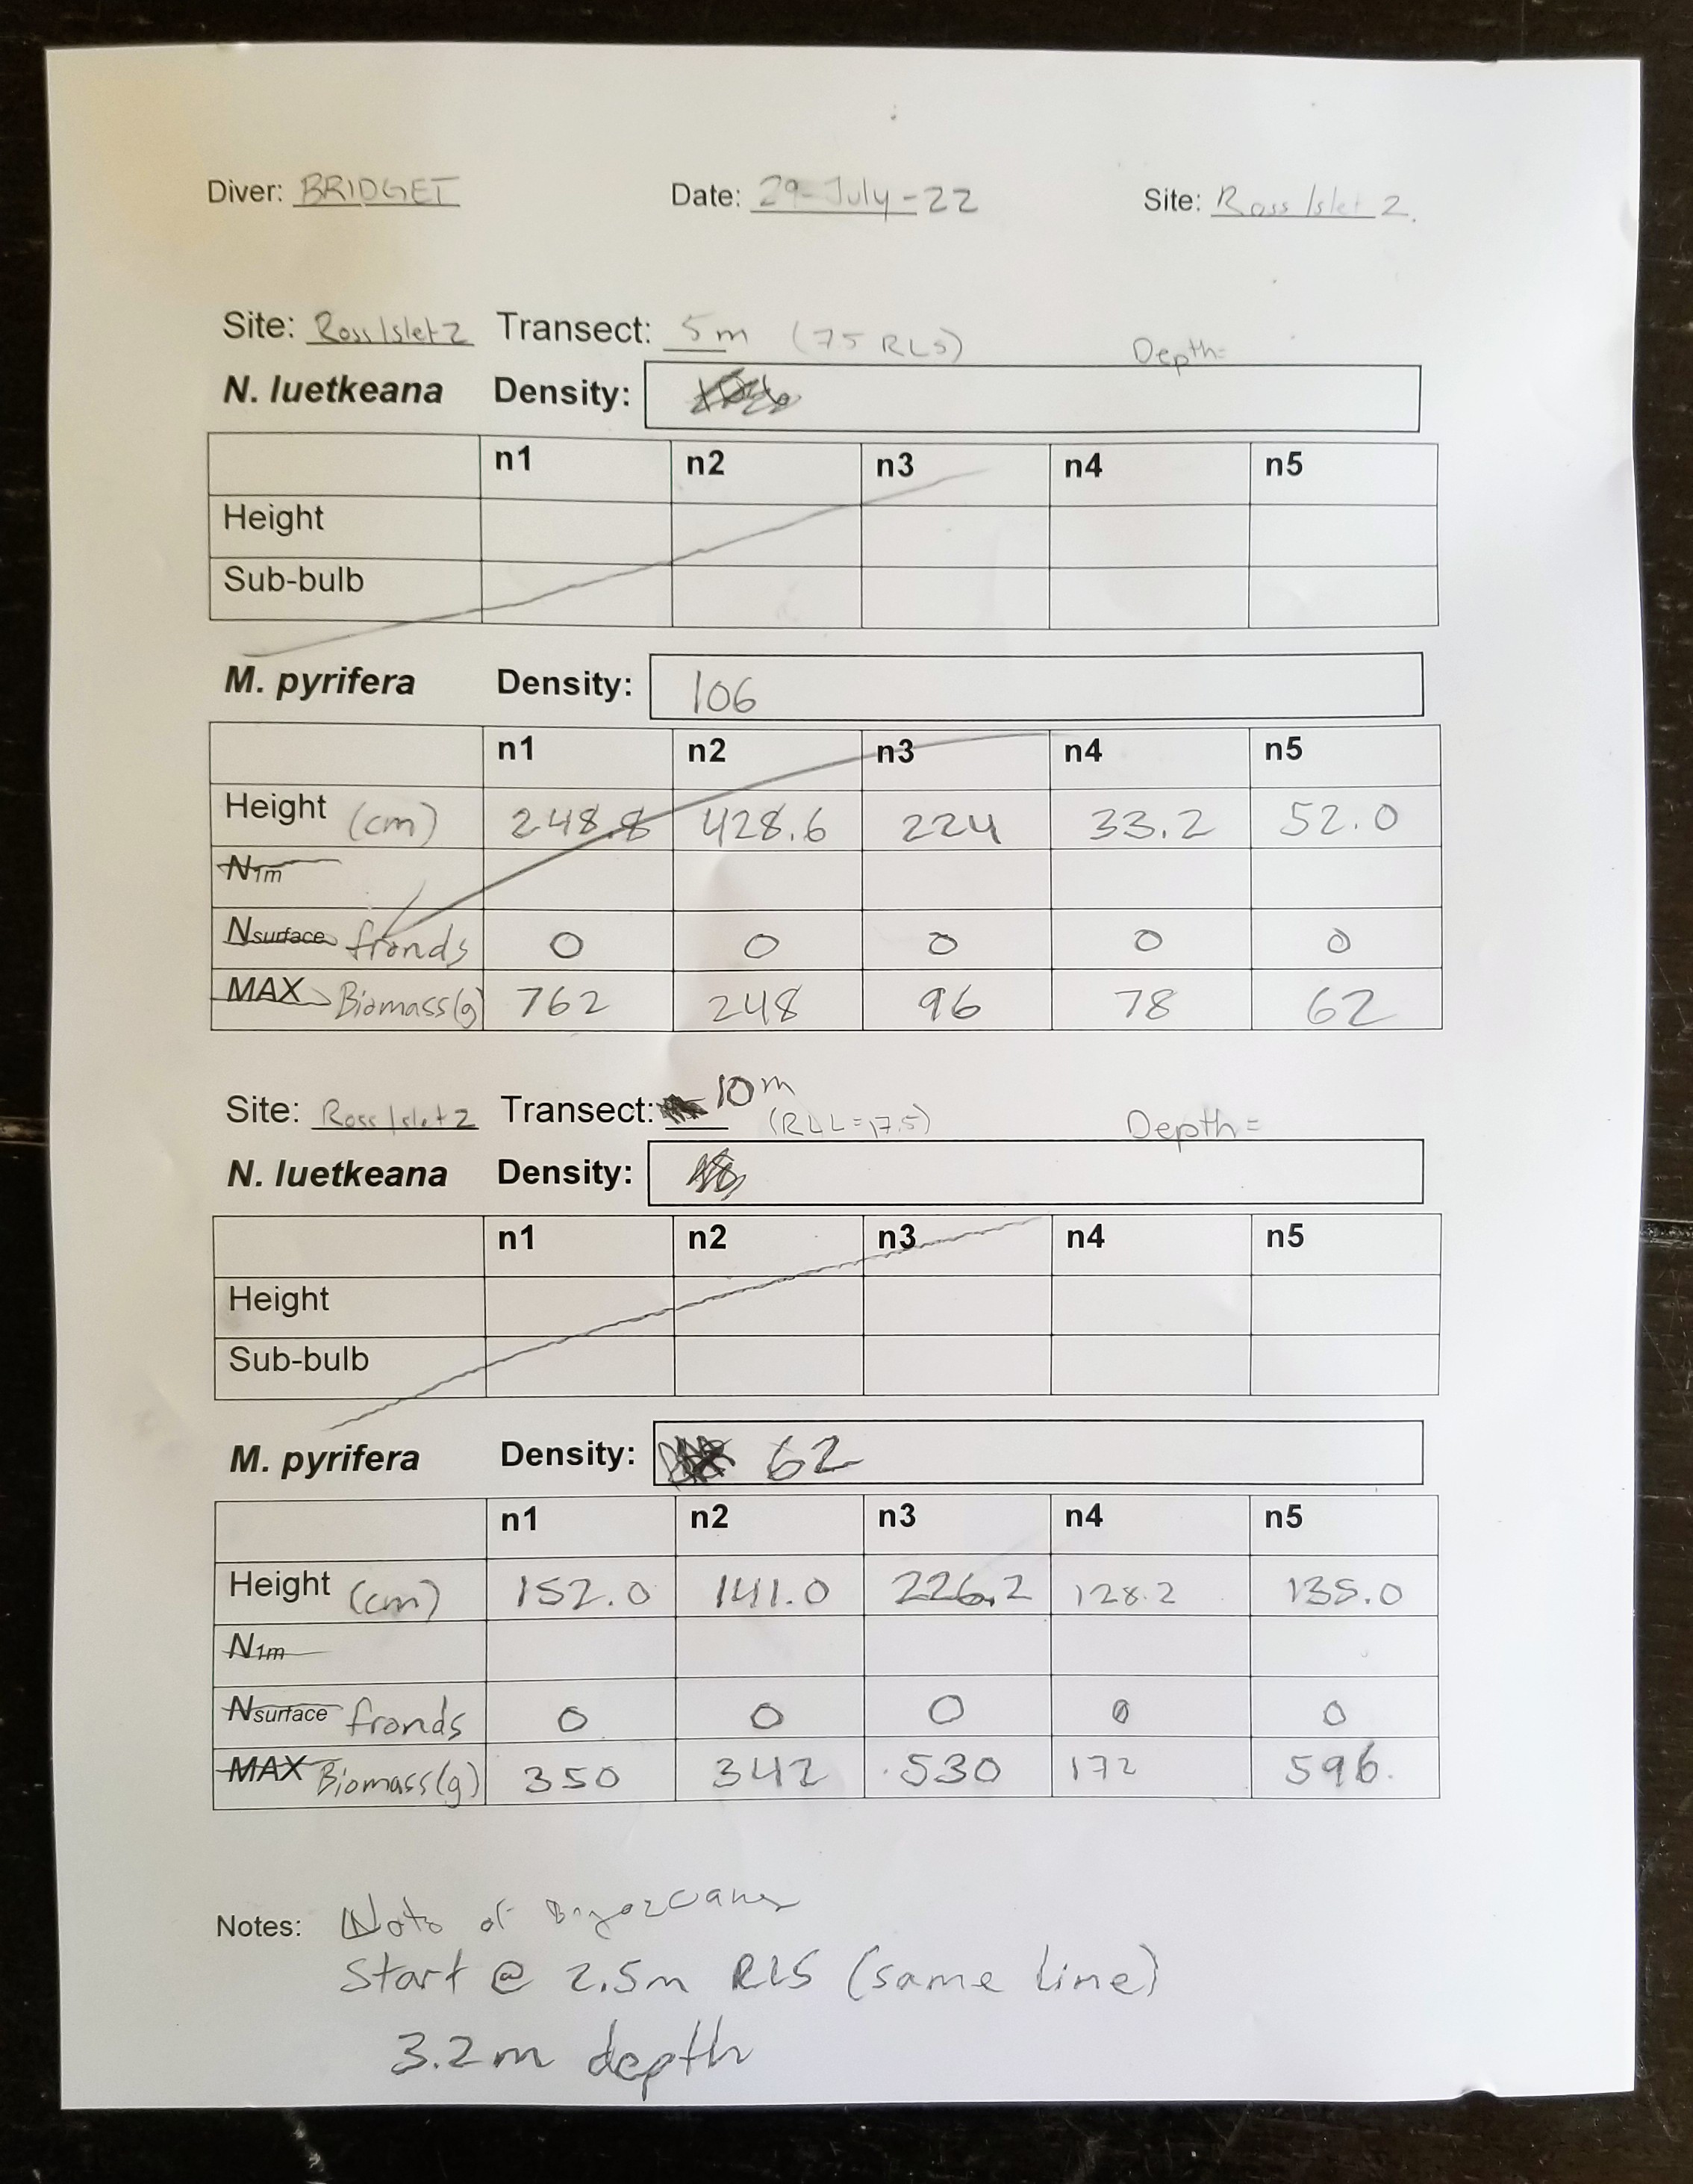 Diver: BRIDGET Date: 29-July-22 Site: Ross Islet 2.
Site: Ross Islet 2 Transect: 5m (7.5 RLS) Depth=
N. luetkeana Density:
n1 n2 n3 n4 n5
Height
Sub-bulb
M. pyrifera Density: 106
n1 n2 n3 n4 n5
Height (cm) 248.8 428.6 224 33.2 52.0
N1m
Nsurface fronds 0 0 0 0 0
MAX Biomass(g) 762 248 96 78 62
Site: Ross Islet 2 Transect: 10m
(RLL=17.5) Depth=
N. luetkeana Density:
n1 n2 n3 n4 n5
Height
Sub-bulb
M. pyrifera Density: 62
n1 n2 n3 n4 n5
Height (cm) 152.0 141.0 226.2 128.2 135.0
N1m
Nsurface fronds 0 0 0 0 0
MAX Biomass(g) 350 342 530 172 596.
Notes: of
Start @ 2.5m RLS (same line)
3.2m depth